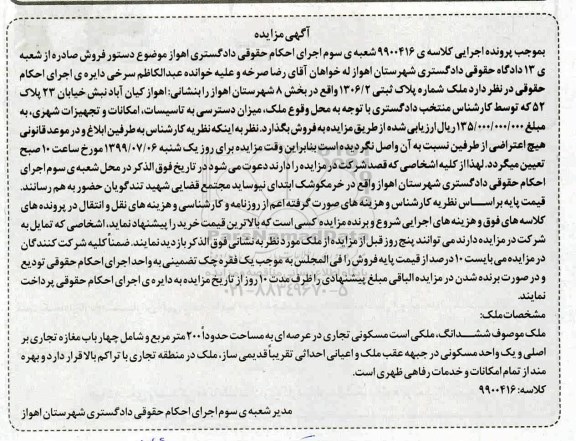 آگهی مزایده
بموجب پرونده اجرایی کلاسه ی ۹۹۰۰۴۱۶ شعبه ی سوم اجرای احکام حقوقی دادگستری اهواز موضوع دستور فروش صادره از شعبه
ی ۱۳ دادگاه حقوقی دادگستری شهرستان اهواز له خواهان آقای رضا صرخه و علیه خوانده عبدالکاظم سرخی دایره ی اجرای احکام
حقوقی در نظر دارد ملک شماره پلاک ثبتی ۱۳۰۶/۲ واقع در بخش ۸ شهرستان اهواز را بنشانی: اهواز کیان آباد نبش خیابان ۲۳ پلاک
۵۲ که توسط کارشناس منتخب دادگستری با توجه به محل وقوع ملک، میزان دسترسی به تاسیسات، امکانات و تجهیزات شهری، به
مبلغ ۱۳۵/۰۰۰/۰۰۰/۰۰۰ ریال ارزیابی شده از طریق مزایده به فروش بگذارد. نظر به اینکه نظریه کارشناس به طرفین ابلاغ و در موعد قانونی
هیچ اعتراضی از طرفین نسبت به آن واصل نگردیده است بنابراین وقت مزایده برای روز یک شنبه ۱۳۹۹/۰۷/۰۶ مورخ ساعت ۱۰ صبح
تعیین میگردد. لهذا از کلیه اشخاصی که قصد شرکت در مزایده را دارند دعوت می شود در تاریخ فوق الذکر در محل شعبه ی سوم اجرای
احکام حقوقی دادگستری شهرستان اهواز واقع در خرمکوشک ابتدای نیوساید مجتمع قضایی شهید تندگویان حضور به هم رسانند.
قیمت پایه براساس نظریه کارشناس و هزینه های صورت گرفته اعم از روزنامه و کارشناسی و هزینه های نقل و انتقال در پرونده های
کلاسه های فوق و هزینه های اجرایی شروع و برنده مزایده کسی است که بالاترین قیمت خرید را پیشنهاد نماید، اشخاصی که تمایل به
شرکت در مزایده دارند می توانند پنج روز قبل از مزایده از ملک مورد نظر به نشانی فوق الذکر بازدید نمایند. ضمناً کلیه شرکت کنندگان
در مزایده می بایست ۱۰ درصد از قیمت پایه فروش را فی المجلس به موجب یک فقره چک تضمینی به واحد اجرای احکام حقوقی تودیع
و در صورت برنده شدن در مزایده الباقی مبلغ پیشنهادی را ظرف مدت ۱۰ روز از تاریخ مزایده به دایره ی اجرای احکام حقوقی پرداخت
نمایند.
مشخصات ملک:
ملک موصوف ششدانگ، ملکی است مسکونی تجاری در عرصه ای به مساحت حدوداً ۲۰۰ متر مربع و شامل چهار باب مغازه تجاری بر
اصلی و یک واحد مسکونی در جبهه عقب ملک و اعیانی احداثی تقریباً قدیمی ساز، ملک در منطقه تجاری با تراکم بالا قرار دارد و بهره
مند از تمام امکانات و خدمات رفاهی ظهری است.
کلاسه: ۹۹۰۰۴۱۶
مدیر شعبه ی سوم اجرای احکام حقوقی دادگستری شهرستان اهواز